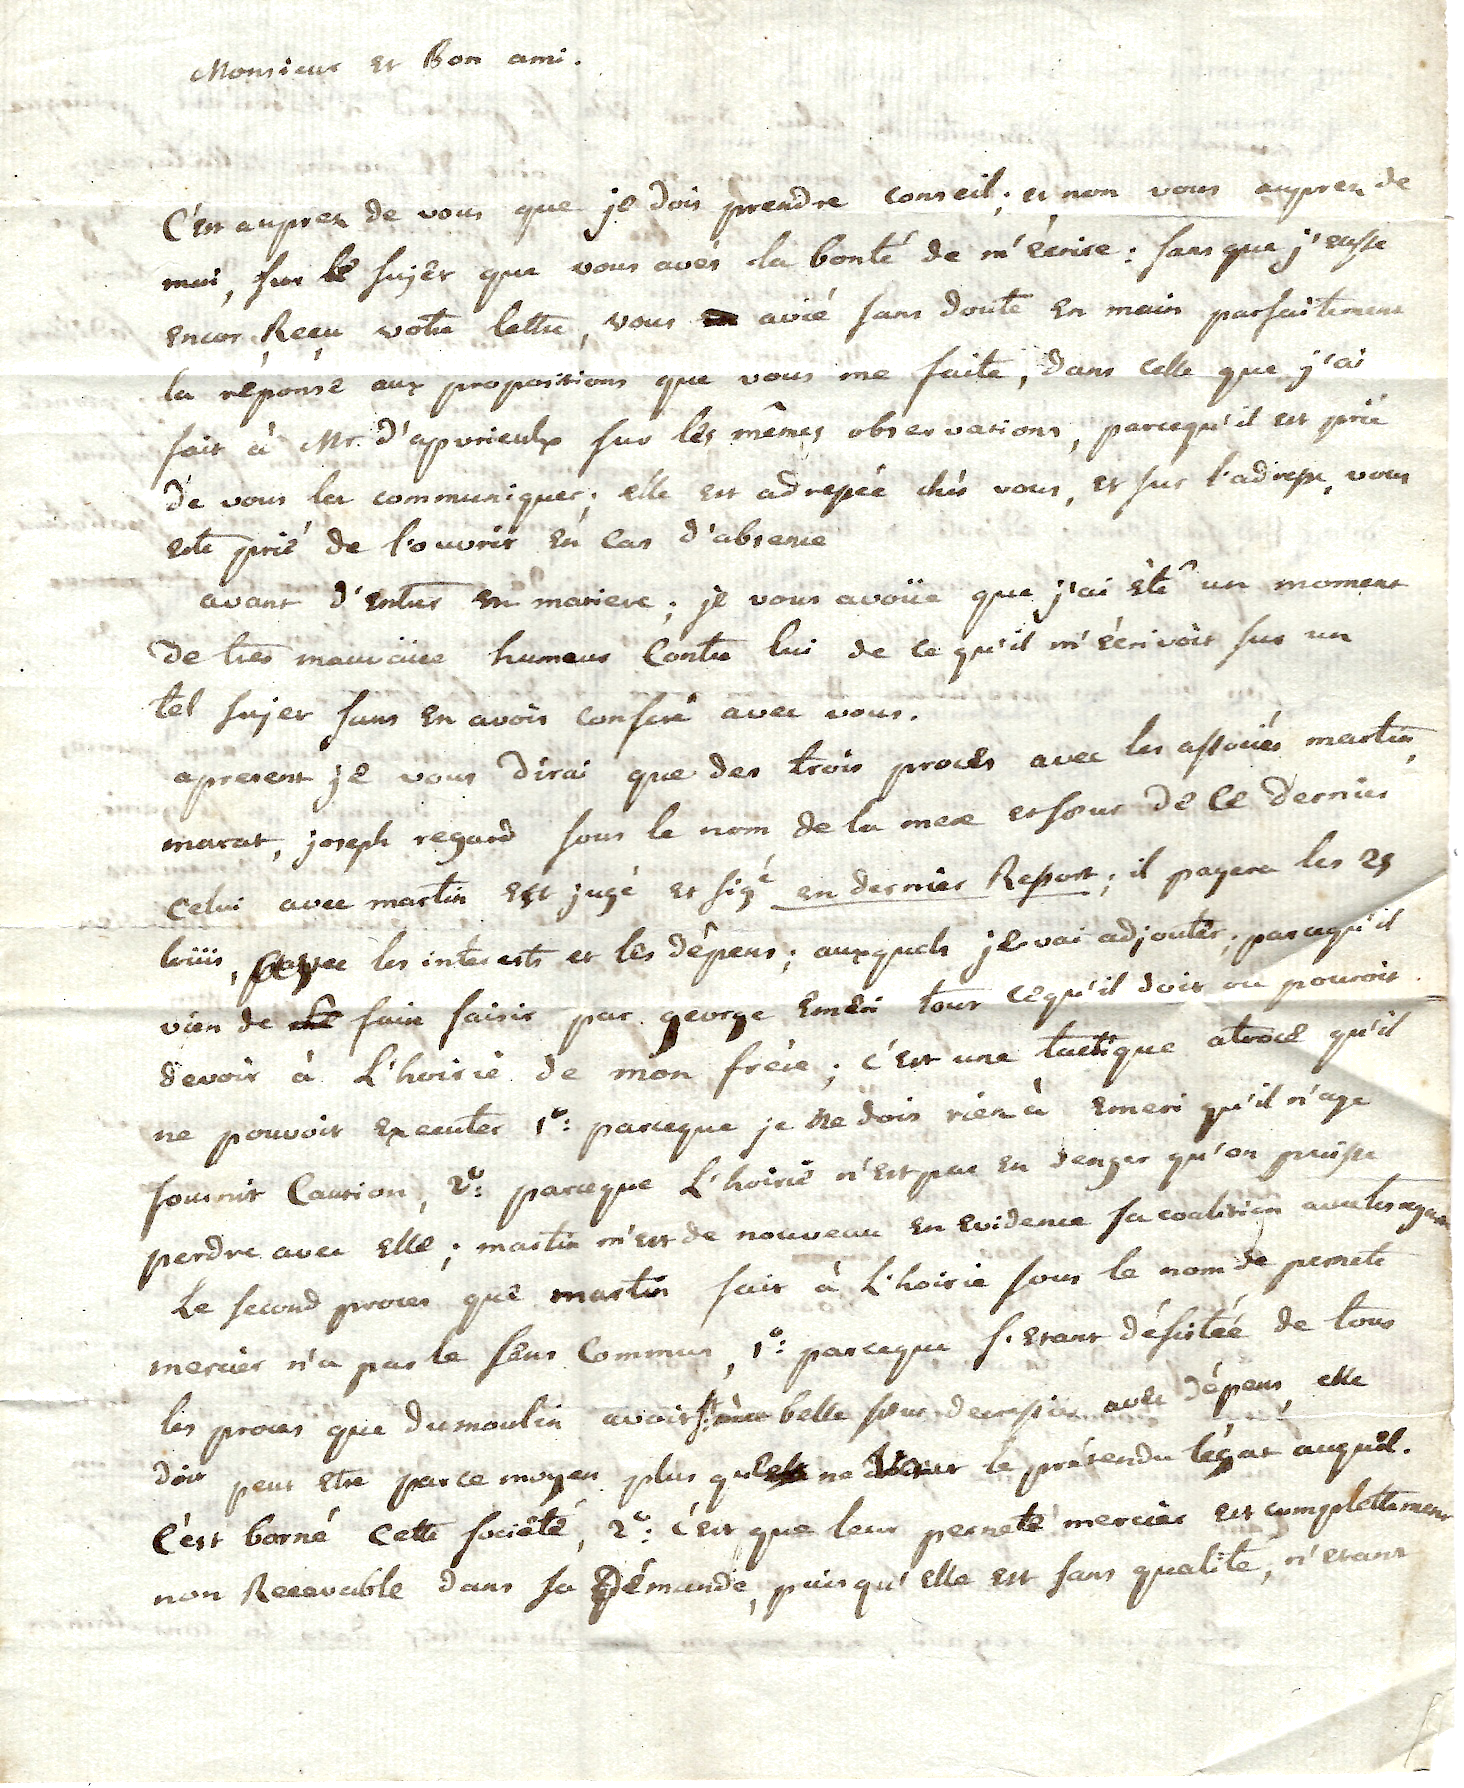 Monsieur et Bon ami.
C'est auprez de vous que je dois prendre conseil; et non vous auprez de
moi, sur le sujèt que vous avés la bonté de m'écrire: sans que j'eusse
encor Reçu votre lettre, vous avié sans doute en main parfaitement
la réponse aux propositions que vous me faite, dans celle que j'ai
fait à Mr. d'apvrieulx sur lés mêmes observations, parcequ'il est prié
de vous les communiquer; elle est adressée chés vous, et sur l'adresse, vous
ete prié de l'ouvrir en cas d'absence
avant d'entrer en matiere; je vous avoüe que j'ai êté un moment
de tres mauvaise humeur contre lui de ce qu'il m'écrivoit sur un
tel sujet sans en avoir conferé avec vous.
apresent je vous dirai que des trois procès avec les associés martin,
marat, joseph regard sous le nom de la mere et sœur de ce dernier
celui avec martin est jugé et sigé en dernier Ressort; il payera les 25
loüis, les interests et lès dêpens; auxquels je vai adjouter; parcequ'il
vien de faire saisir par george emeri tout cequ'il doit ou pouroit
devoir à L'hoirie de mon frére; c'est une tactique atroce qu'il
ne pouvoit executer 1°: parceque je ne dois rien à emeri qu'il n'aye
fournit Caution, 2°: parceque L'hoirie n'est pas en denger qu'on puisse
perdre avec elle; martin m'est de nouveau en evidence sa coalition avec les regard
Le second proces que martin fait à L'hoirie sous le nom de pernete
mercier n'a pas le sens commun, 1°: parceque s'etant désistée de tous
les proces que dumoulin avoit belle sœur decressin avec dépens, elle
doit peut etre par ce moyen plus que ne le prétendu légat auquel.
c'est borné cette societé, 2°: c'est que leur perneté mercier est complettement
non Recevable dans sa Démande, puisqu'elle est sans qualité, n'etant